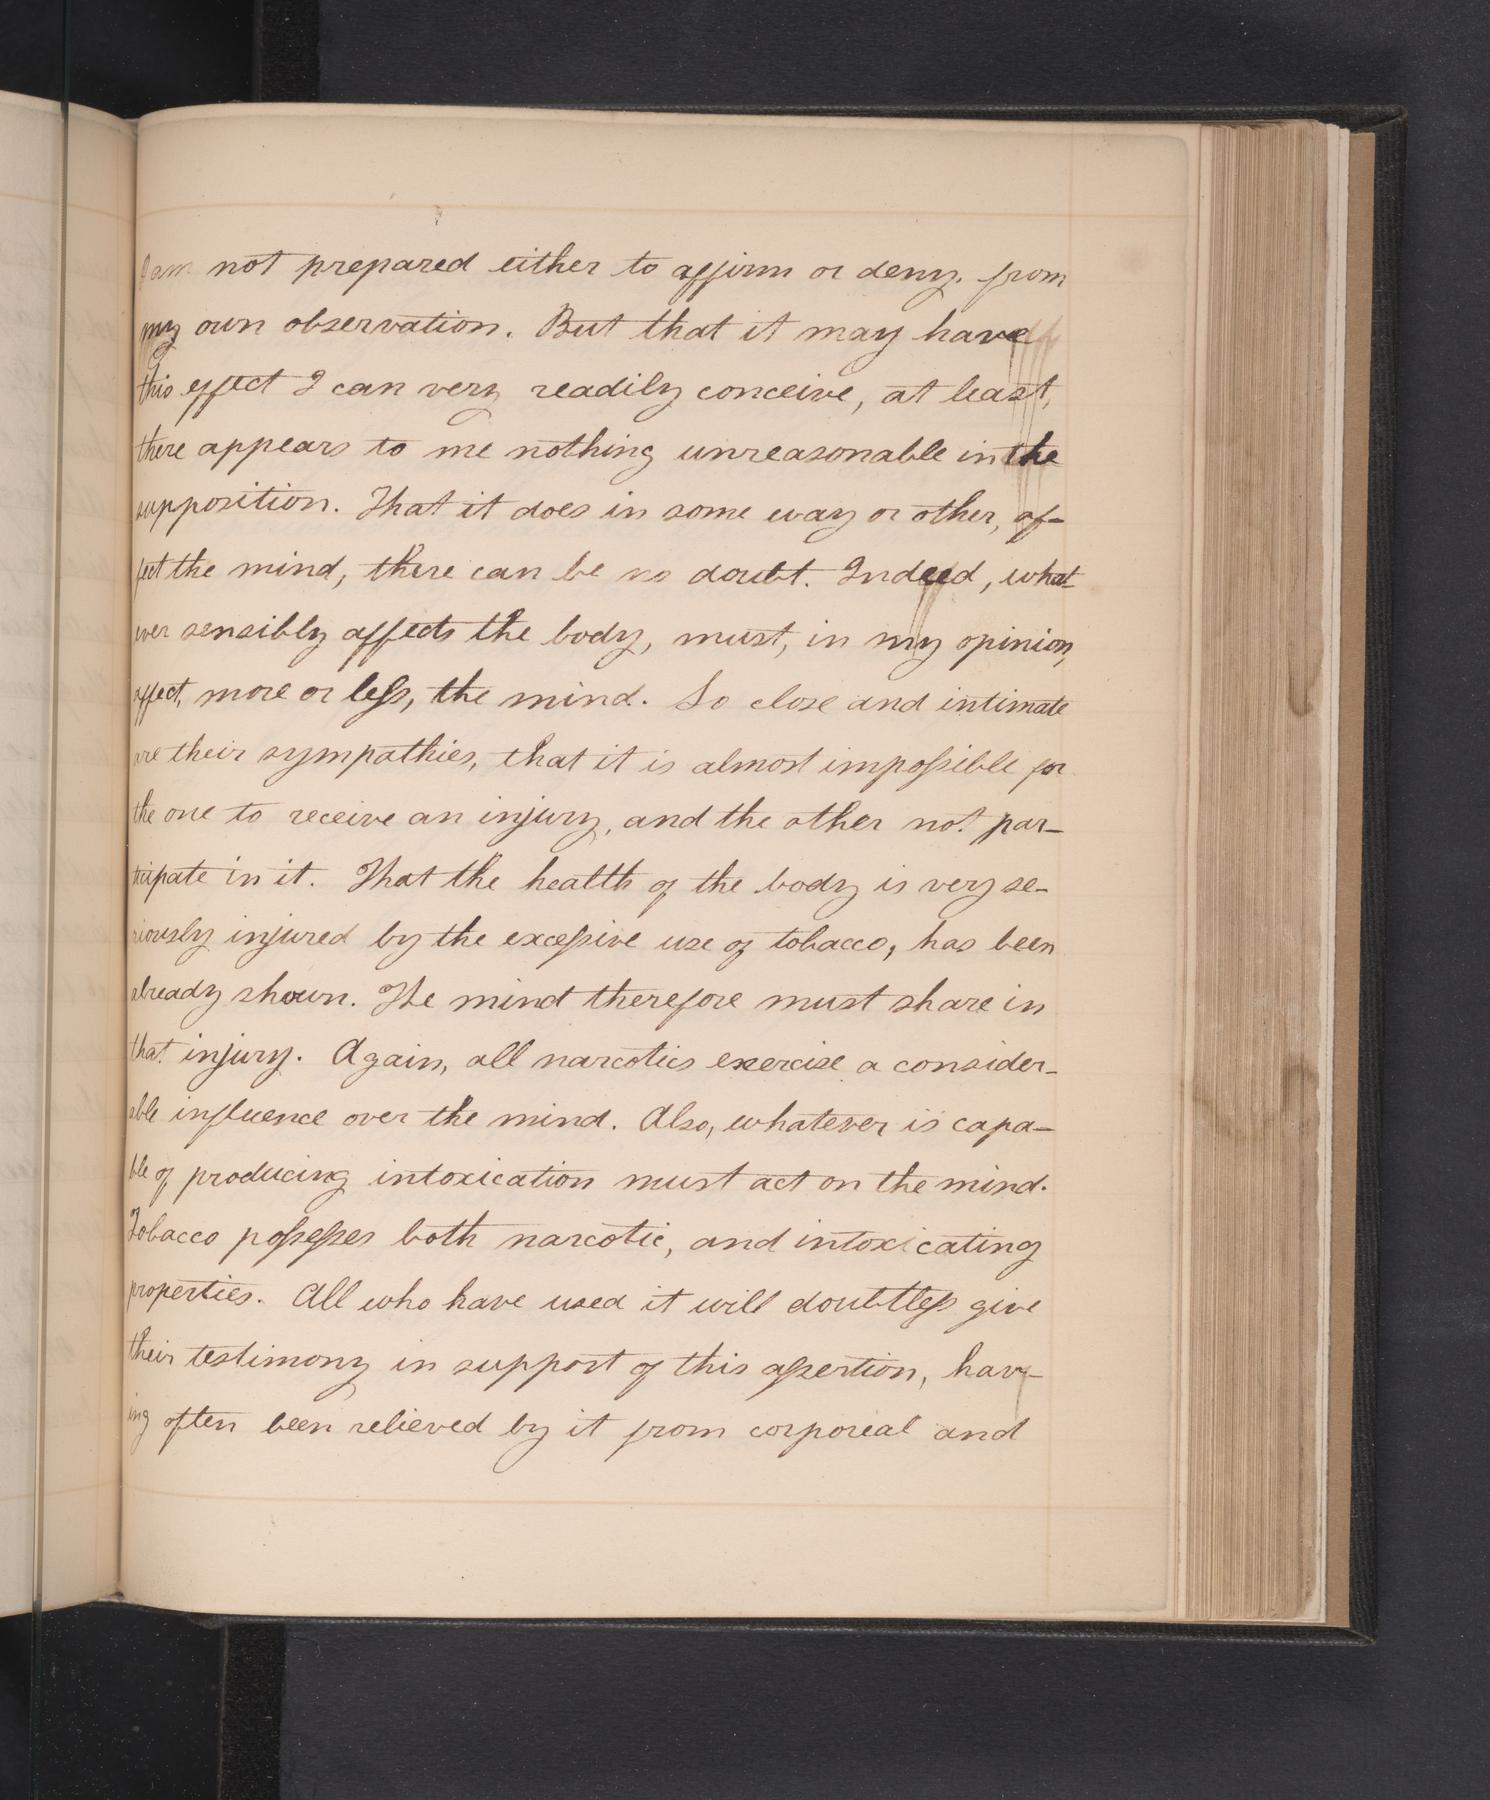 I am not prepared either to affirm or deny, from
my own observation. But that it may have
this effect I can very readily conceive, at least,
there appears to me nothing unreasonable in the
supposition. That it does in some way or other, af-
fect the mind, there can be no doubt. Indeed, what-
ever sensibly affects the body, must, in my opinion,
affect, more or less, the mind. So close and intimate
are their sympathies, that it is almost impossible for
the one to receive an injury, and the other not par-
ticipate in it. That the health of the body is very se-
riously injured by the excessive use of tobacco, has been
already shown. The mind therefore must share in
that injury. Again, all narcotics exercise a consider-
able influence over the mind. Also, whatever is capa-
ble of producing intoxication must act on the mind.
Tobacco possesses both narcotic, and intoxicating
properties. All who have used it will doubtless give
their testimony in support of this assertion, hav-
ing often been relieved by it from corporeal and